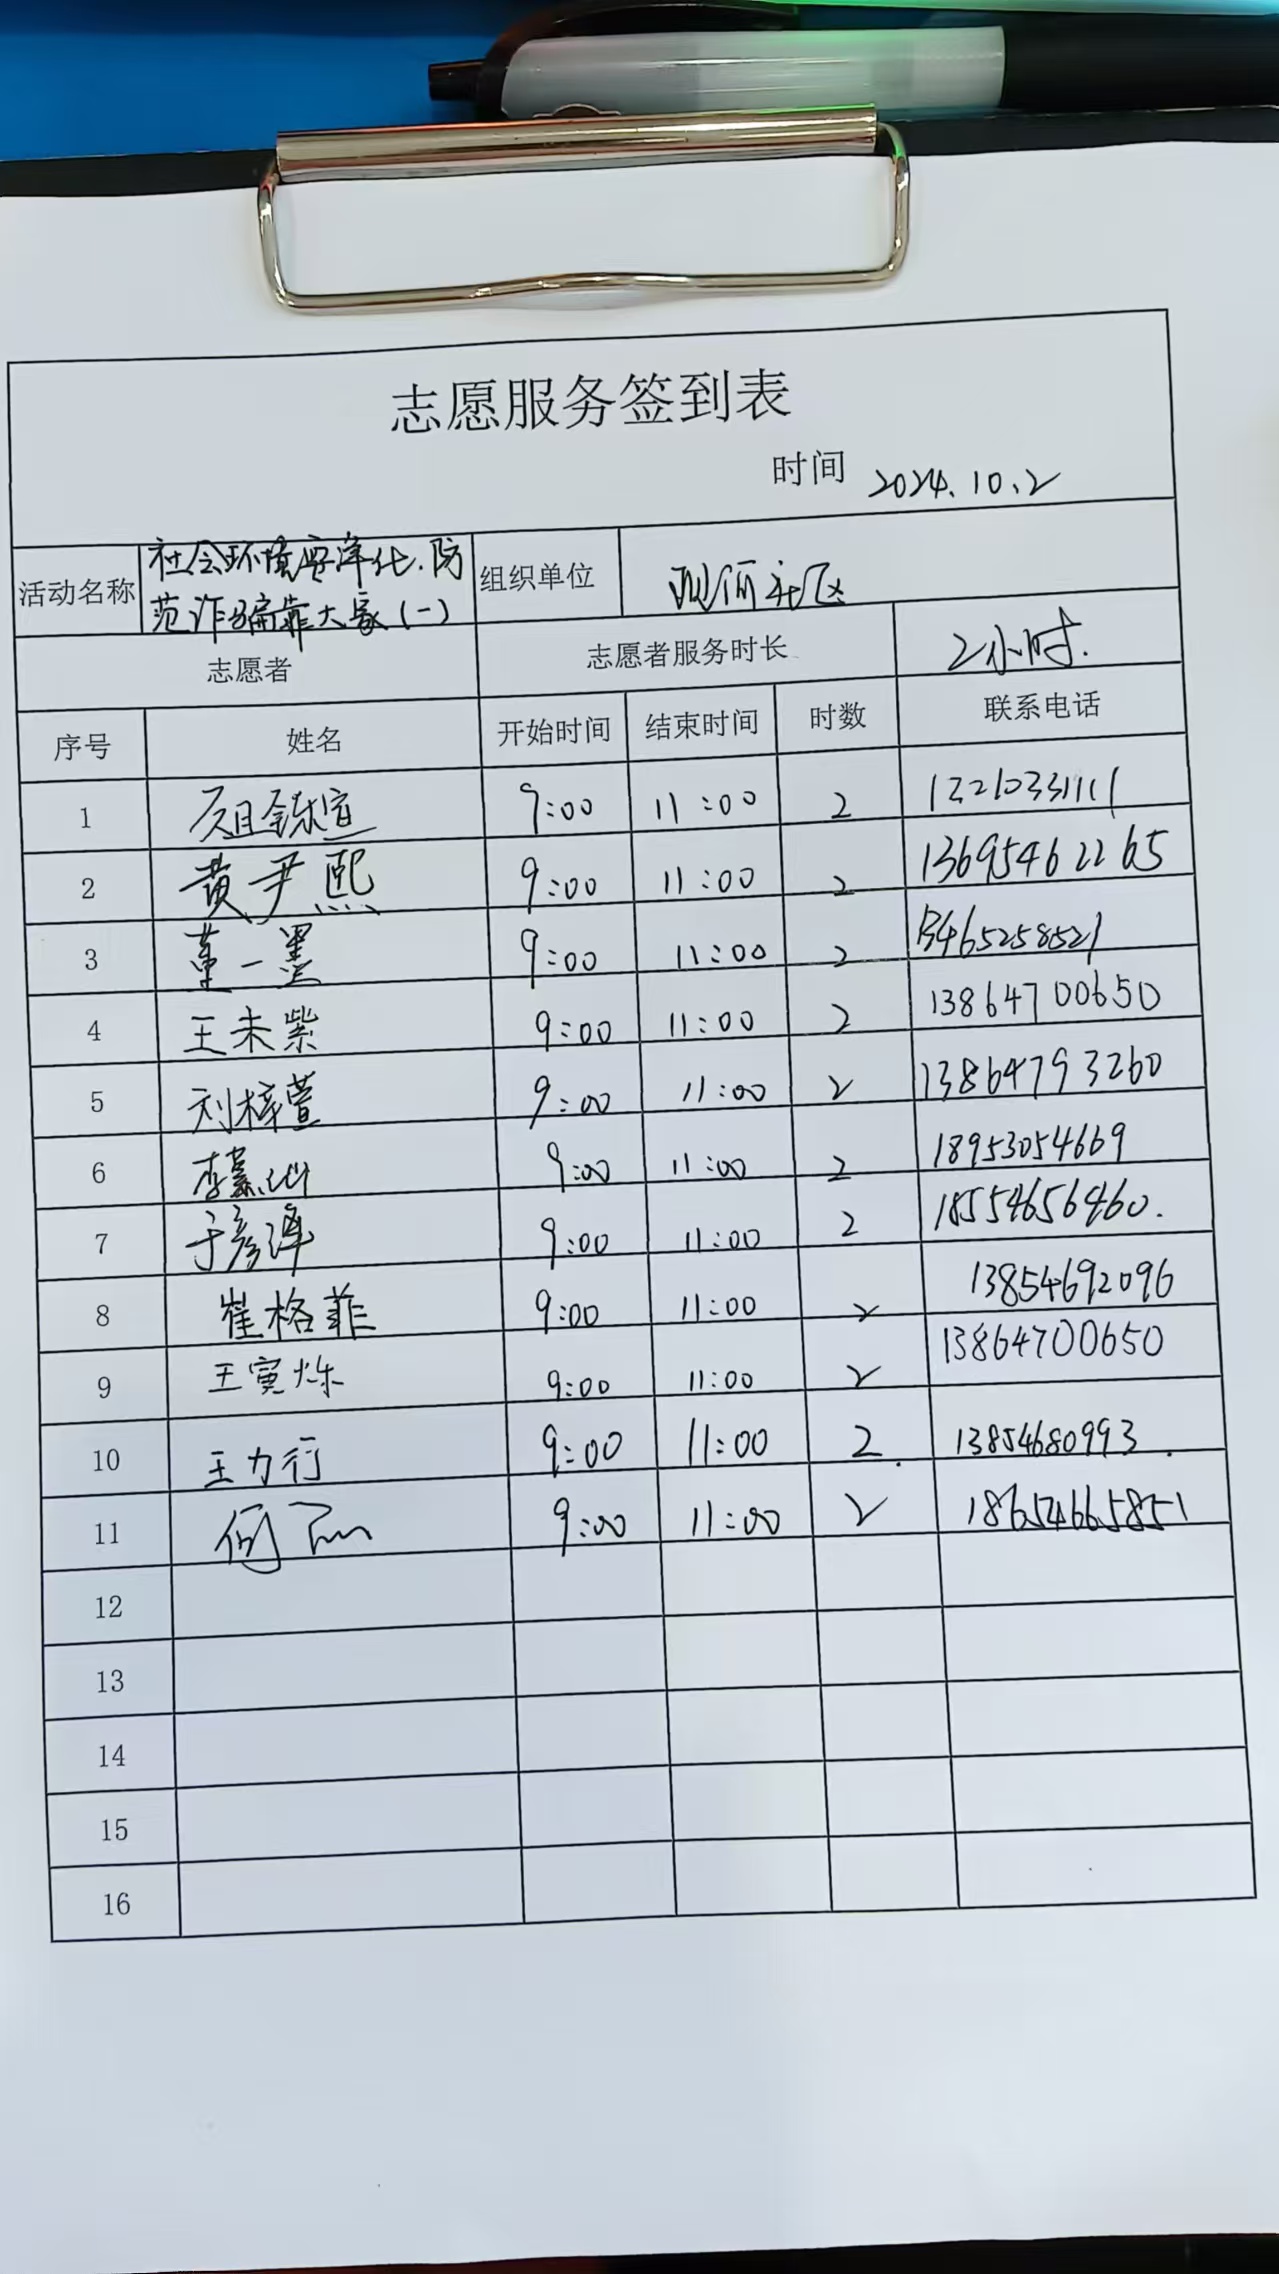 志愿服务签到表
时间 2024.10.2
活动名称 社会环境要净化.防范诈骗靠大家(一) 组织单位 现河社区
志愿者 志愿者服务时长 2小时.
序号 姓名 开始时间 结束时间 时数 联系电话
1 9:00 11:00 2 13210331111
2 黄尹熙 9:00 11:00 2 13695462265
3 董一墨 9:00 11:00 2 13465258521
4 王未紫 9:00 11:00 2 13864700650
5 刘梓萱 9:00 11:00 2 13864793260
6 李 9:00 11:00 2 18953054669
7 于彦泽 9:00 11:00 2 18554656460.
8 崔格菲 9:00 11:00 2 13854692096
9 王寅烁 9:00 11:00 2 13864700650
10 王力行 9:00 11:00 2. 13854680993.
11 何 9:00 11:00 2 18654665851
12
13
14
15
16